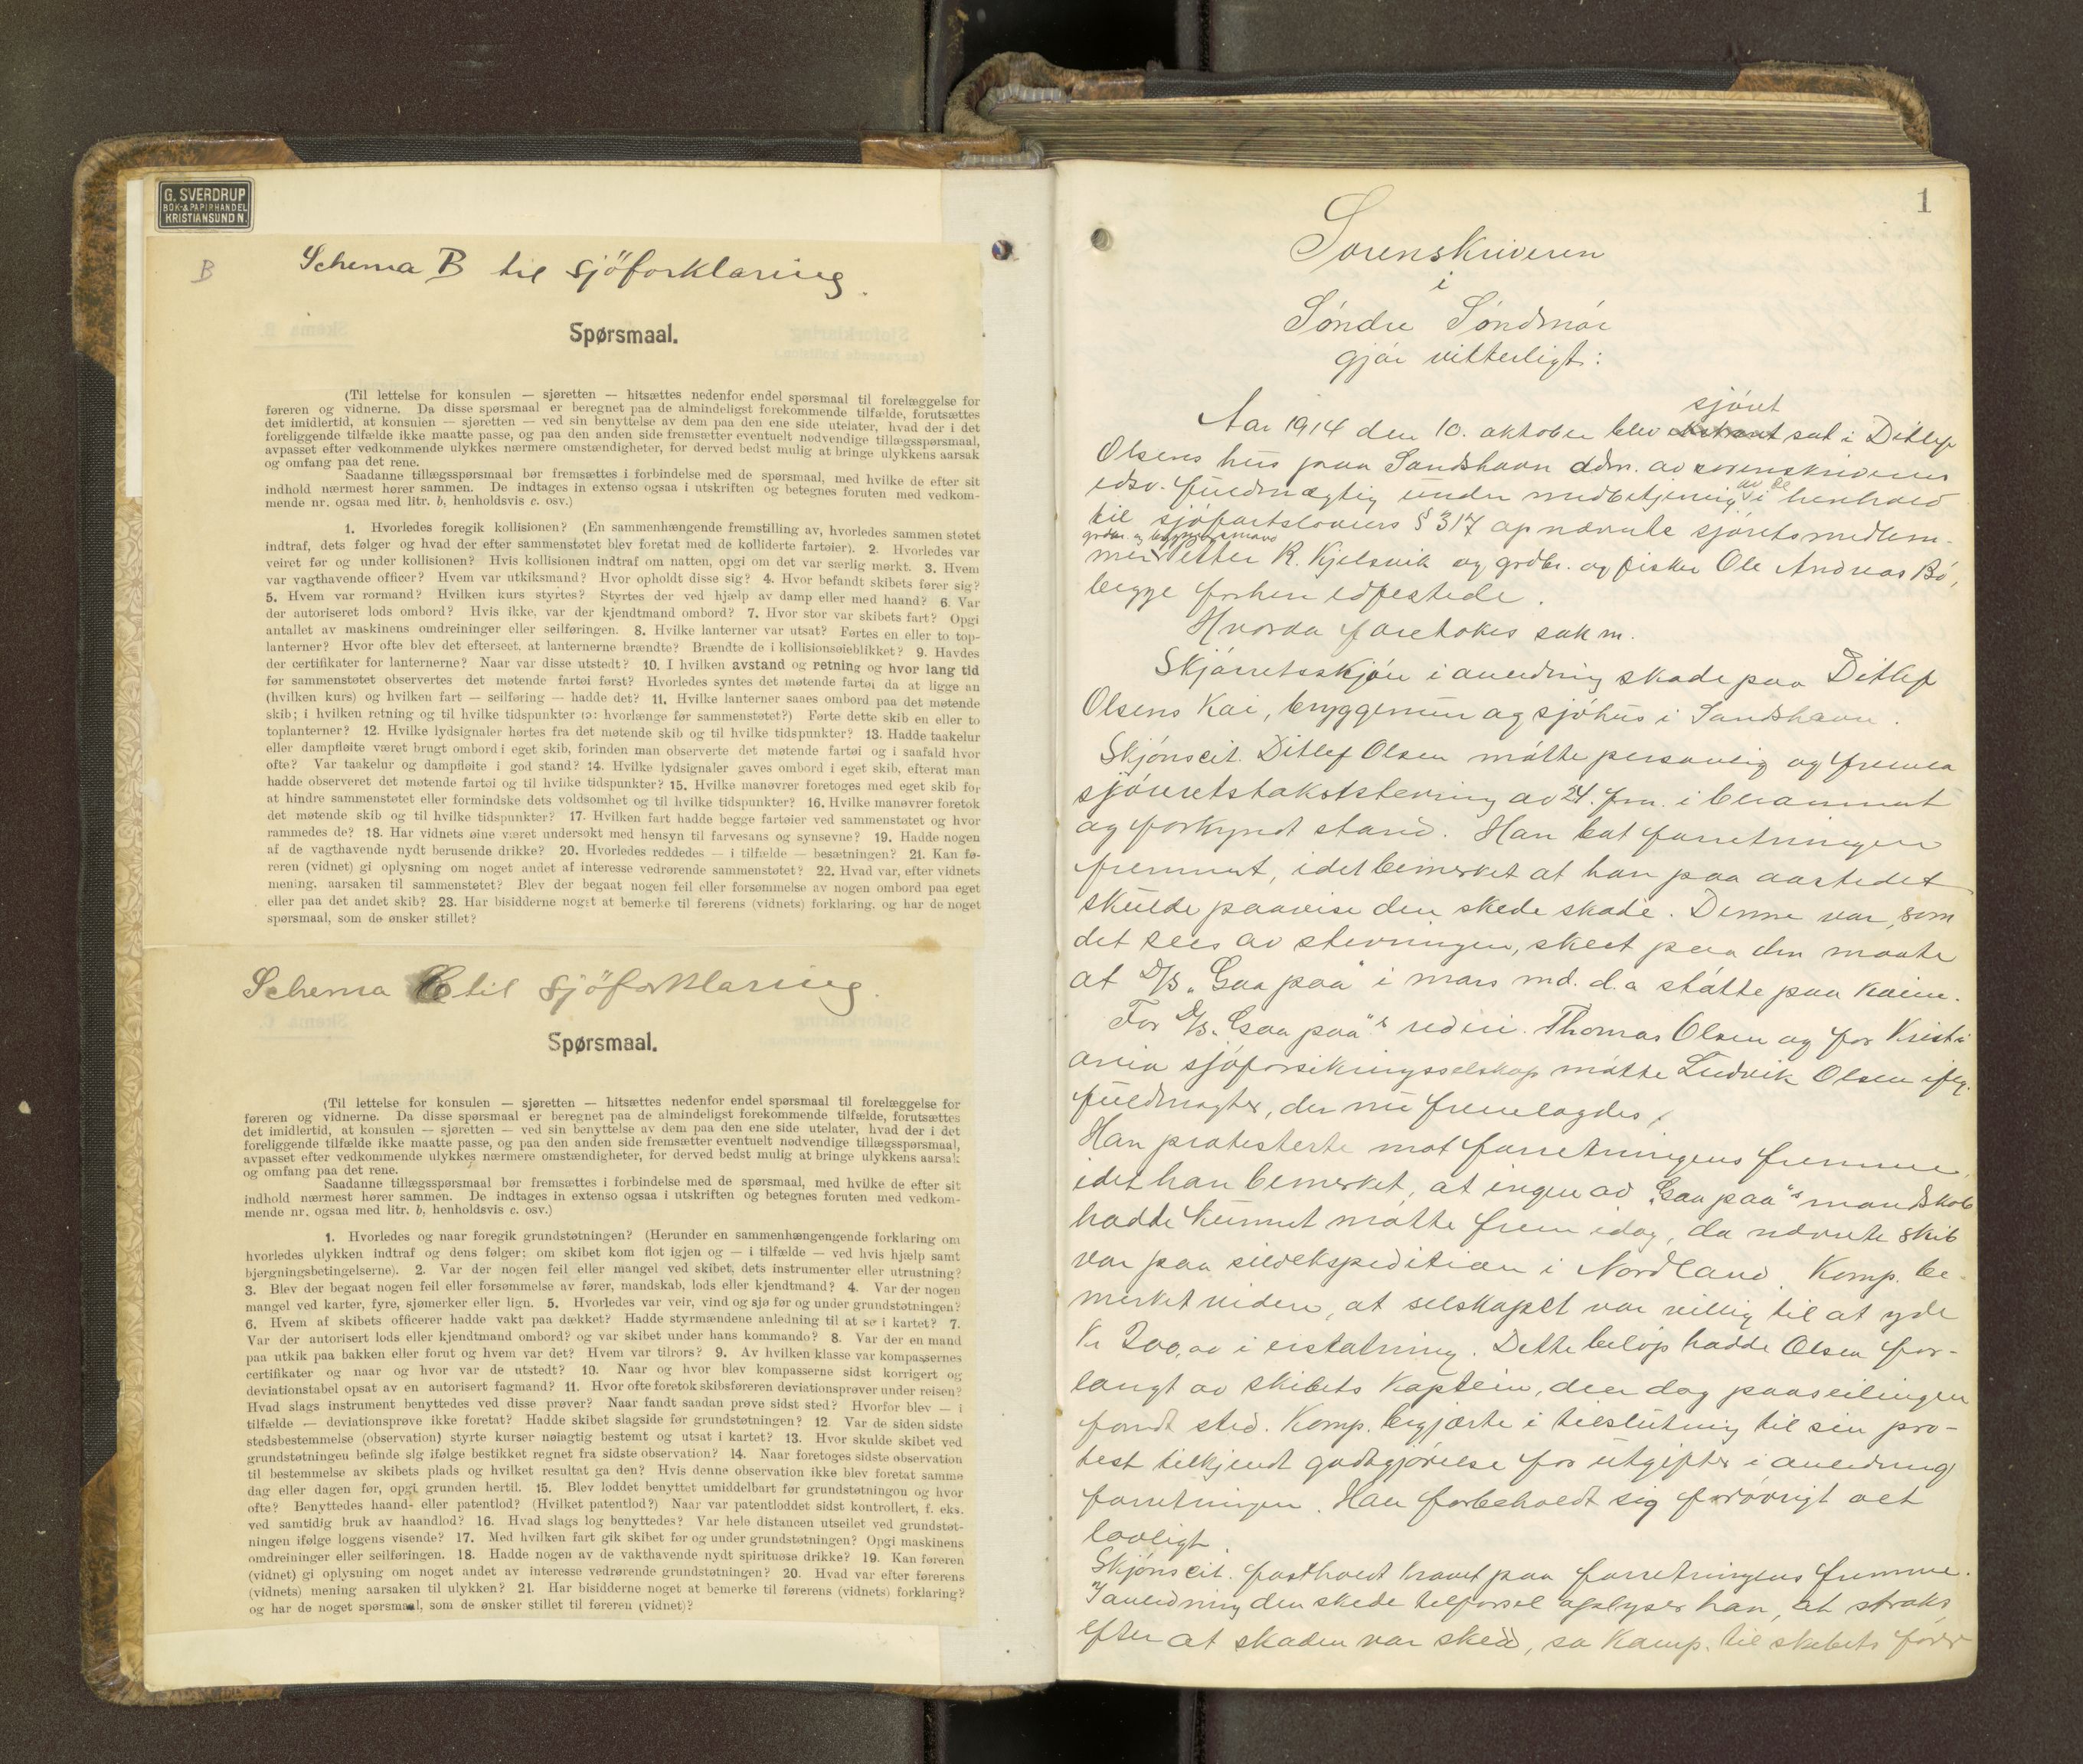 G. SVERDRUP
BOK- & PAPIRHANDEL
KRISTIANSUND N.
B
Schema B til sjöforklaring.
Spørsmaal.
(Til lettelse for konsulen — sjøretten — hitsættes nedenfor endel spørsmaal til forelæggelse for
føreren og vidnerne. Da disse spørsmaal er beregnet paa de almindeligst forekommende tilfælde, forutsættes
det imidlertid, at konsulen — sjøretten — ved sin benyttelse av dem paa den ene side utelater, hvad der i det
foreliggende tilfælde ikke maatte passe, og paa den anden side fremsætter eventuelt nødvendige tillægsspørsmaal,
avpasset efter vedkommende ulykkes nærmere omstændigheter, for derved bedst mulig at bringe ulykkens aarsak
og omfang paa det rene.
Saadanne tillægsspørsmaal bør fremsættes i forbindelse med de spørsmaal, med hvilke de efter sit
indhold nærmest hører sammen. De indtages in extenso ogsaa i utskriften og betegnes foruten med vedkom-
mende nr. ogsaa med litr. b, henholdsvis c. osv.)
1. Hvorledes foregik kollisionen? (En sammenhængende fremstilling av, hvorledes sammen støtet
indtraf, dets følger og hvad der efter sammenstøtet blev foretat med de kolliderte fartøier). 2. Hvorledes var
veiret før og under kollisionen? Hvis kollisionen indtraf om natten, opgi om det var særlig mørkt. 3. Hvem
var vagthavende officer? Hvem var utkiksmand? Hvor opholdt disse sig? 4. Hvor befandt skibets fører sig?
5. Hvem var rormand? Hvilken kurs styrtes? Styrtes der ved hjælp av damp eller med haand? 6. Var
der autoriseret lods ombord? Hvis ikke, var der kjendtmand ombord? 7. Hvor stor var skibets fart? Opgi
antallet av maskinens omdreininger eller seilføringen. 8. Hvilke lanterner var utsat? Førtes en eller to top-
lanterner? Hvor ofte blev det efterseet, at lanternerne brændte? Brændte de i kollisionsøieblikket? 9. Havdes
der certifikater for lanternerne? Naar var disse utstedt? 10. I hvilken avstand og retning og hvor lang tid
før sammenstøtet observertes det møtende fartøi først? Hvorledes syntes det møtende fartøi da at ligge an
(hvilken kurs) og hvilken fart — seilføring — hadde det? 11. Hvilke lanterner saaes ombord paa det møtende
skib; i hvilken retning og til hvilke tidspunkter (ɔ: hvorlænge før sammenstøtet?) Førte dette skib en eller to
toplanterner? 12. Hvilke lydsignaler hørtes fra det møtende skib og til hvilke tidspunkter? 13. Hadde taakelur
eller dampfløite været brugt ombord i eget skib, forinden man observerte det møtende fartøi og i saafald hvor
ofte? Var taakelur og dampfløite i god stand? 14. Hvilke lydsignaler gaves ombord i eget skib, efterat man
hadde observeret det møtende fartøi og til hvilke tidspunkter? 15. Hvilke manøvrer foretoges med eget skib for
at hindre sammenstøtet eller formindske dets voldsomhet og til hvilke tidspunkter? 16. Hvilke manøvrer foretok
det møtende skib og til hvilke tidspunkter? 17. Hvilken fart hadde begge fartøier ved sammenstøtet og hvor
rammedes de? 18. Har vidnets øine været undersøkt med hensyn til farvesans og synsevne? 19. Hadde nogen
af de vagthavende nydt berusende drikke? 20. Hvorledes reddedes — i tilfælde — besætningen? 21. Kan fø-
reren (vidnet) gi oplysning om noget andet af interesse vedrørende sammenstøtet? 22. Hvad var, efter vidnets
mening, aarsaken til sammenstøtet? Blev der begaat nogen feil eller forsømmelse av nogen ombord paa eget
eller paa det andet skib? 23. Har bisidderne noget at bemerke til førerens (vidnets) forklaring, og har de noget
spørsmaal, som de ønsker stillet?
Schema C til sjöforklaring.
Spørsmaal.
(Til lettelse for konsulen — sjøretten — hitsættes nedenfor endel spørsmaal til forelæggelse for
føreren og vidnerne. Da disse spørsmaal er beregnet paa de almindeligst forekommende tilfælde, forutsættes
det imidlertid, at konsulen — sjøretten — ved sin benyttelse av dem paa den ene side utelater, hvad der i det
foreliggende tilfælde ikke maatte passe, og paa den anden side fremsætter eventuelt nødvendige tillægsspørsmaal,
avpasset efter vedkommende ulykkes nærmere omstændigheter, for derved bedst mulig at bringe ulykkens aarsak
og omfang paa det rene.
Saadanne tillægsspørsmaal bør fremsættes i forbindelse med de spørsmaal, med hvilke de efter sit
indhold nærmest hører sammen. De indtages in extenso ogsaa i utskriften og betegnes foruten med vedkom-
mende nr. ogsaa med litr. b, henholdsvis c. osv.)
1. Hvorledes og naar foregik grundstøtningen? (Herunder en sammenhængengende forklaring om
hvorledes ulykken indtraf og dens følger; om skibet kom flot igjen og — i tilfælde — ved hvis hjælp samt
bjergningsbetingelserne). 2. Var der nogen feil eller mangel ved skibet, dets instrumenter eller utrustning?
3. Blev der begaat nogen feil eller forsømmelse av fører, mandskab, lods eller kjendtmand? 4. Var der nogen
mangel ved karter, fyre, sjømerker eller lign. 5. Hvorledes var veir, vind og sjø før og under grundstøtningen?
6. Hvem af skibets officerer hadde vakt paa dækket? Hadde styrmændene anledning til at se i kartet? 7.
Var der autorisert lods eller kjendtmand ombord? og var skibet under hans kommando? 8. Var der en mand
paa utkik paa bakken eller forut og hvem var det? Hvem var tilrors? 9. Av hvilken klasse var kompassernes
certifikater og naar og hvor var de utstedt? 10. Naar og hvor blev kompasserne sidst korrigert og
deviationstabel opsat av en autorisert fagmand? 11. Hvor ofte foretok skibsføreren deviationsprøver under reisen?
Hvad slags instrument benyttedes ved disse prøver? Naar fandt saadan prøve sidst sted? Hvorfor blev — i
tilfælde — deviationsprøve ikke foretat? Hadde skibet slagside før grundstøtningen? 12. Var de siden sidste
stedsbestemmelse (observation) styrte kurser nøiagtig bestemt og utsat i kartet? 13. Hvor skulde skibet ved
grundstøtningen befinde sig ifølge bestikket regnet fra sidste observation? 14. Naar foretoges sidste observation
til bestemmelse av skibets plads og hvilket resultat ga den? Hvis denne observation ikke blev foretat samme
dag eller dagen før, opgi grunden hertil. 15. Blev loddet benyttet umiddelbart før grundstøtningen og hvor
ofte? Benyttedes haand- eller patentlod? (Hvilket patentlod?) Naar var patentloddet sidst kontrollert, f. eks.
ved samtidig bruk av haandlod? 16. Hvad slags log benyttedes? Var hele distancen utseilet ved grundstøt-
ningen ifølge loggens visende? 17. Med hvilken fart gik skibet før og under grundstøtningen? Opgi maskinens
omdreininger eller seilføringen. 18. Hadde nogen av de vakthavende nydt spirituøse drikke? 19. Kan føreren
(vidnet) gi oplysning om noget andet av interesse vedrørende grundstøtningen? 20. Hvad var efter førerens
(vidnets) mening aarsaken til ulykken? 21. Har bisidderne noget at bemerke til førerens (vidnets) forklaring?
og har de noget spørsmaal, som de ønsker stillet til føreren (vidnet)?
1
Sorenskriveren
i
Söndre Söndmör
gjör vitterligt:
sjöret
Aar 1914 den 10. oktober blev sat i Ditlef
Olsens hus paa Sandshavn adm. av sorenskriverens
edsv. fuldmægtig under medbetjening av de i henhold
til sjöfartslovens § 317 opnævnte sjöretsmedlem-
mer Peter R. Kjelsvik og grdbr. og fisker Ole Andreas Bö,
begge forhen edfestede.
Hvorda foretokes sak m.
Skjörretsskjön i anledning skade paa Ditlef
Olsens kai, bryggemur og sjöhus i Sandshavn.
Skjönscit. Ditlef Olsen mötte personlig og fremla
sjöretstakststevning av 24. f.m. i berammet
og forkyndt stand. Han bat forretningen
fremmet, idet bemerket at han paa aastedet
skulde paavise den skede skade. Denne var, som
det sees av stevningen, skeet paa den maate
at D/S „Gaa paa" i mars md. d.a stötte paa kaien.
For D/S. „Gaa paa"s rederi. Thomas Olsen og for Kristi-
ania sjöforsikringsselskap mötte Ludvik Olsen iflg.
fuldmagter, der nu fremlagdes.
Han protesterte mot forretningens fremme,
idet han bemerket, at ingen av „Gaa paa"s mandskab
hadde kunnet mötte frem idag, da nævnte skib
var paa sildekspedition i Nordland. Komp. be-
merket videre, at selskapet var villig til at yde
Kr 200,00 i erstatning. Dette belöp hadde Olsen for-
langt av skibets kaptein, den dag paaseilingen
fandt sted. Komp. begjærte i tilslutning til sin pro-
test tilkjendt godtgjörelse for utgifter i anledning
forretningen. Han forbeholdt sig forövrigt alt
lovligt.
Skjönscit. fastholdt kravet paa forretningens fremme.
I anledning den skede tilförsel oplyser han, at straks
efter at skaden var skedd, sa Komp. til skibets förer